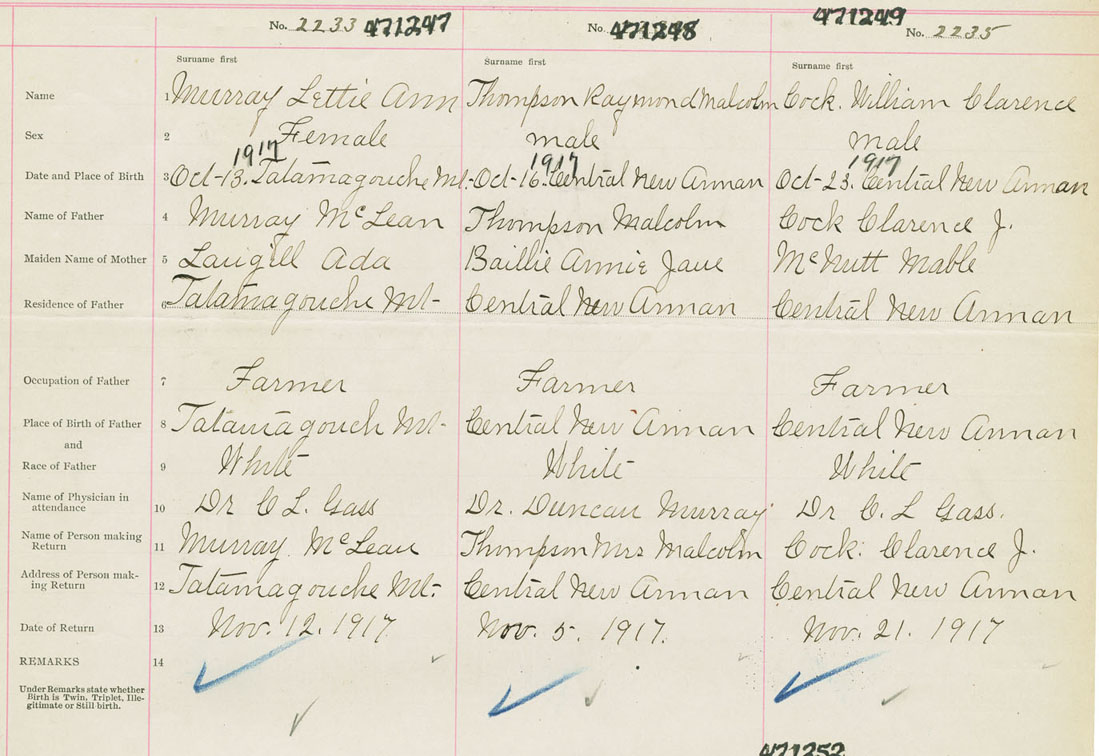 No. 2233 471247 No. 471248 471249 No. 2235
Surname first Surname first Surname first
Name 1 Murray Lettie Ann Thompson Raymond Malcolm Cock. William Clarence
Sex 2 Female male male
1917 1917 1917
Date and Place of Birth 3 Oct-13. Tatamagouche Mt.- Oct-16. Central New Annan Oct-23. Central New Annan
Name of Father 4 Murray McLean Thompson Malcolm Cock Clarence J.
Maiden Name of Mother 5 Langill Ada Baillie Annie Jane McNutt Mable
Residence of Father 6 Tatamagouche Mt- Central New Annan Central New Annan
Occupation of Father 7 Farmer Farmer Farmer
Place of Birth of Father 8 Tatamagouch Mt- Central New Annan Central New Annan
and
Race of Father 9 White White White
Name of Physician in
attendance 10 Dr C L. Gass Dr. Duncan Murray Dr C. L Gass.
Name of Person making
Return 11 Murray McLean Thompson Mrs Malcolm Cock. Clarence J.
Address of Person mak-
ing Return 12 Tatamagouche Mt- Central New Annan Central New Annan
Date of Return 13 Nov. 12. 1917 Nov. 5. 1917. Nov. 21. 1917
REMARKS 14
Under Remarks state whether
Birth is Twin, Triplet, Ille-
gitimate or Still birth.
471252